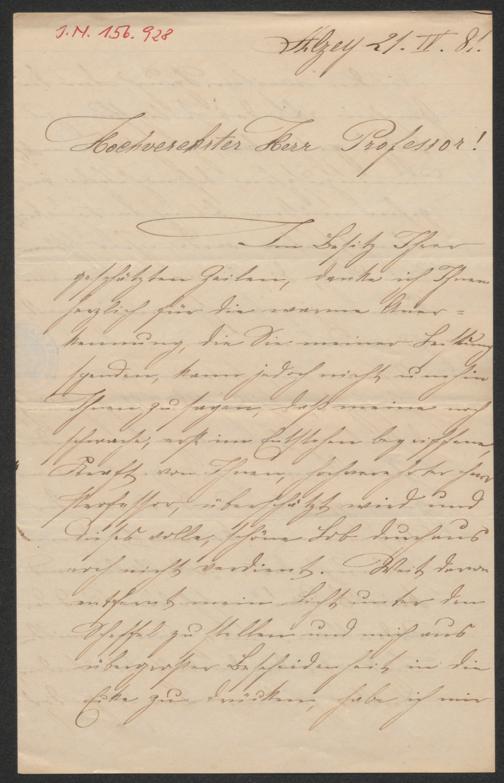 J.N. 156.928
Alzey 21. IV. 81.
Hochverehrter Herr Professor!
Im Besitz Ihrer
geschätzten Zeilen, danke ich Ihnen
herzlich für die warme Aner=
kennung, die Sie meiner Leistung
spenden, kann jedoch nicht umhin
Ihnen zu sagen, daß meine noch
schwache, erst im Entstehen begriffene
Kraft von Ihnen, hochverehrter Herr
Professor, überschätzt wird und
dieses volle, schöne Lob durchaus
noch nicht verdient. Weit davon
entfernt mein Licht unter den
Scheffel zu stellen und mich aus
übergroßer Bescheidenheit in die
Ecke zu drücken, habe ich mir